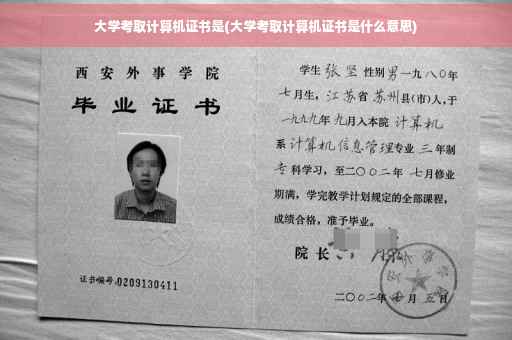 大学考取计算机证书是(大学考取计算机证书是什么意思)
西安外事学院
毕业证书
证书编号:0209130411
学生 张坚 性别 男 一九八〇年
七月生，江苏省 苏州县(市)人，于
一九九九年 九月入本院 计算机
系 计算机信息管理专业 三 年制
专科学习，至二〇〇二年 七月修业
期满，学完教学计划规定的全部课程，
成绩合格，准予毕业。
院长
二〇〇二年 月 五日